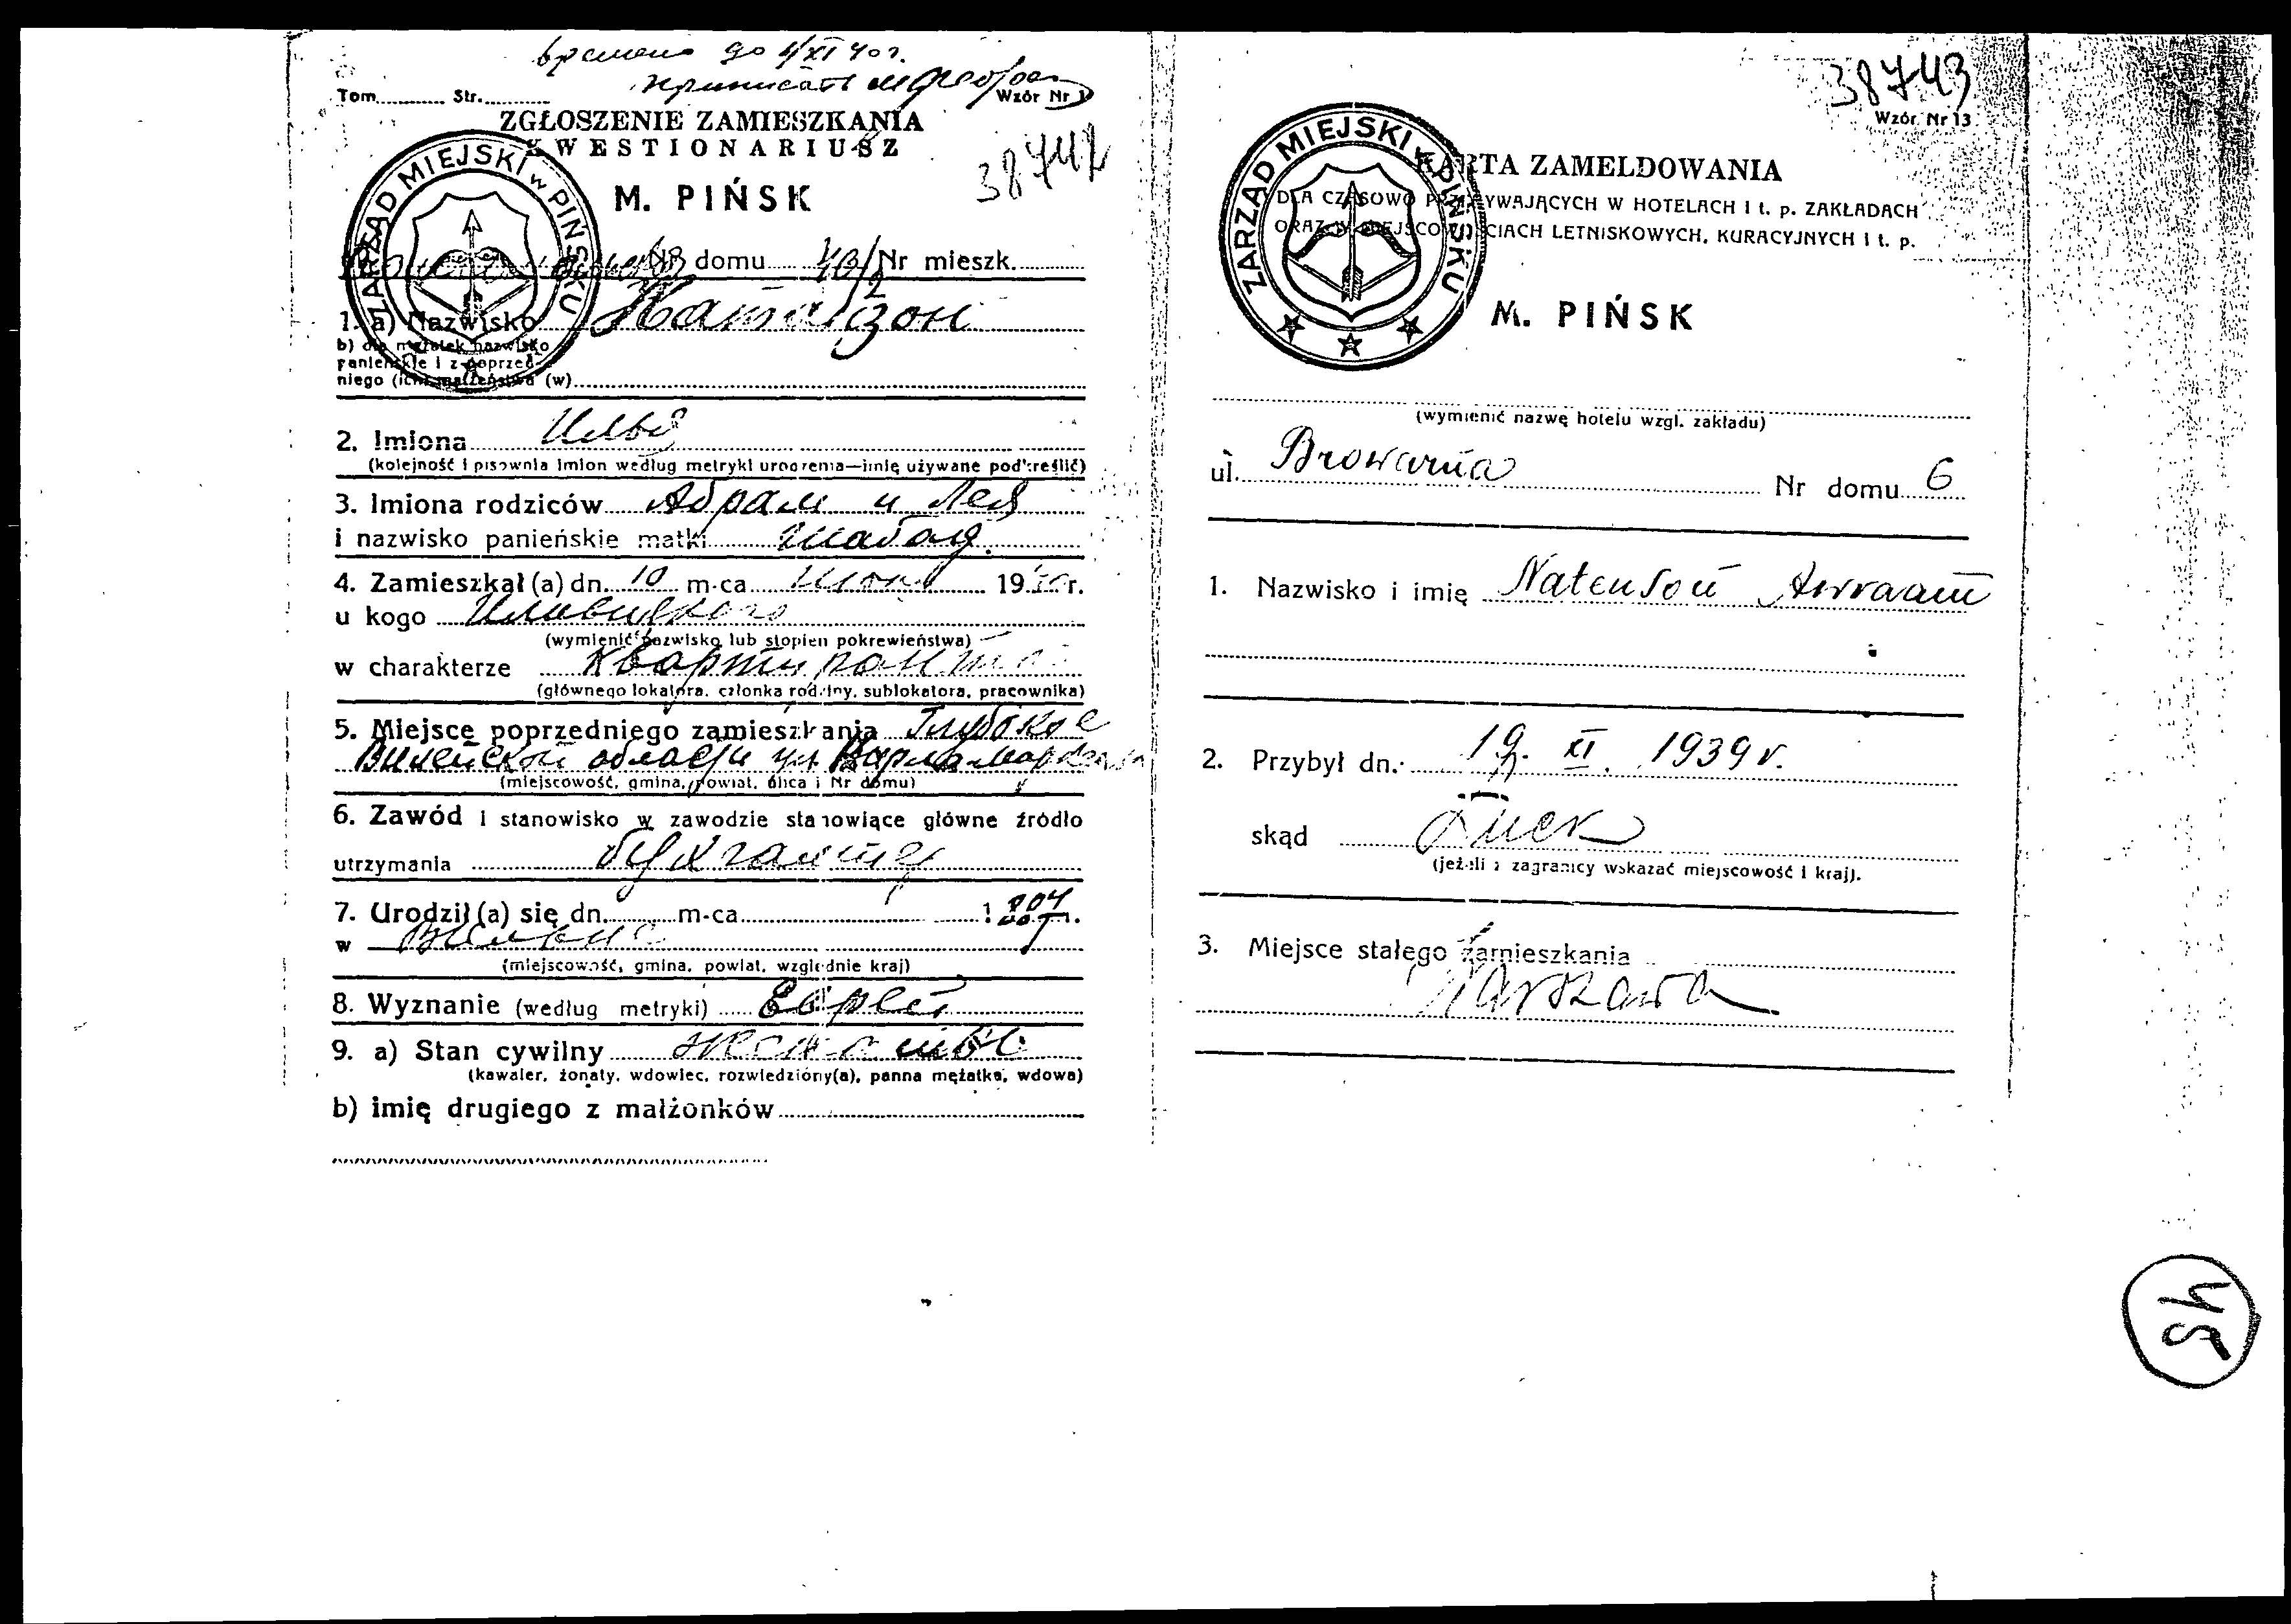 до 1/XI 40 г.
Tom............ Str.............
Wzór Nr 1
ZGŁOSZENIE ZAMIESZKANIA
KWESTIONARIUSZ
38742
M. PIŃSK
ZARZĄD MIEJSKI w PIŃSKU
Nr domu 40/2 Nr mieszk.
1. a) Nazwisko Натанзон
b) dla mężatek nazwisko
panieńskie i z poprzed-
niego (ich) małżeństwa (w)
2. Imiona
(kolejność i pisownia imion według metryki urodzenia—imię używane podkreślić)
3. Imiona rodziców Абрам и Лея
i nazwisko panieńskie matki
4. Zamieszkał (a) dn. 10 m-ca 19 r.
u kogo
(wymienić nazwisko lub stopień pokrewieństwa)
w charakterze квартиранта
(głównego lokatora, członka rodziny, sublokatora, pracownika)
5. Miejsce poprzedniego zamieszkania Глубокое
Вилейской области ул.
(miejscowość, gmina, powiat, ulica i Nr domu)
6. Zawód i stanowisko w zawodzie stanowiące główne źródło
utrzymania
7. Urodził (a) się dn. m-ca 1904 r.
w
(miejscowość, gmina, powiat, względnie kraj)
8. Wyznanie (według metryki) Еврей
9. a) Stan cywilny
(kawaler, żonaty, wdowiec, rozwiedziony(a), panna mężatka, wdowa)
b) imię drugiego z małżonków
38743
Wzór Nr 13
KARTA ZAMELDOWANIA
DLA CZASOWO PRZEBYWAJĄCYCH W HOTELACH I t. p. ZAKŁADACH
ORAZ W MIEJSCOWOŚCIACH LETNISKOWYCH, KURACYJNYCH I t. p.
ZARZĄD MIEJSKI w PIŃSKU
M. PIŃSK
(wymienić nazwę hotelu wzgl. zakładu)
ul. Browarna Nr domu 6
1. Nazwisko i imię Natenson Awraam
2. Przybył dn. 19. XI. 1939 r.
skąd Łuck
(jeżeli z zagranicy wskazać miejscowość i kraj).
3. Miejsce stałego zamieszkania
Warszawa
45